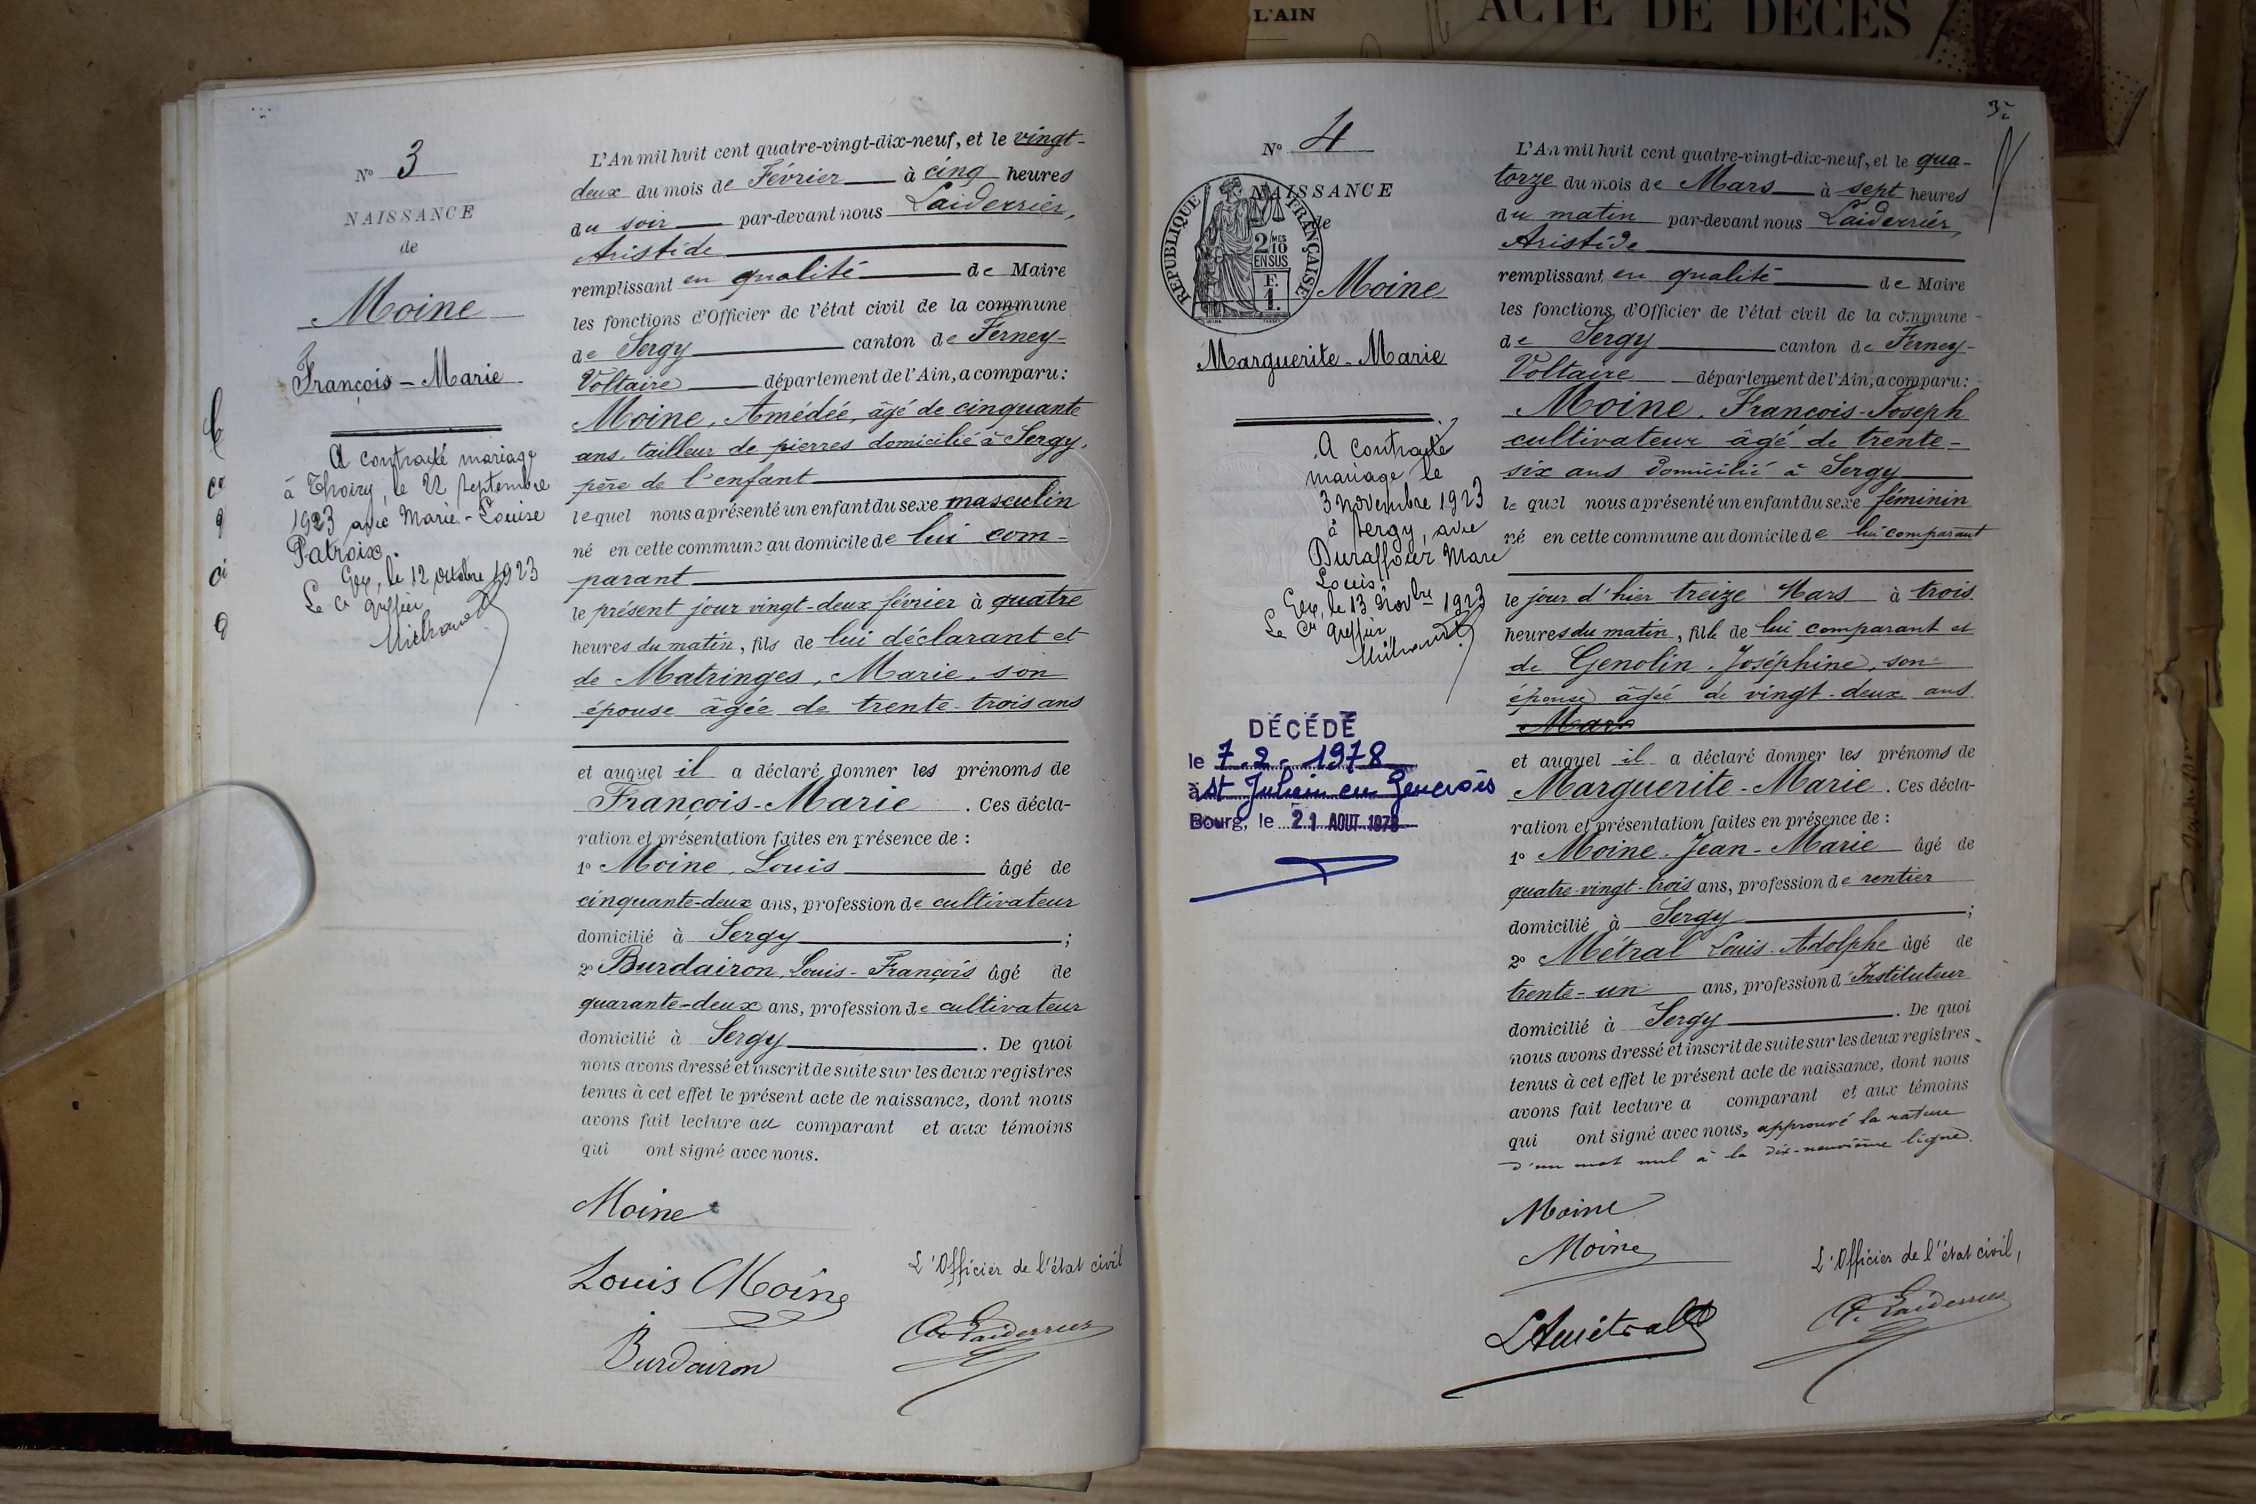 L'AIN
ACTE DE DÉCÈS
N° 3
NAISSANCE
de
Moine
François-Marie
A contracté mariage
à Thoiry, le 22 septembre
1923 avec Marie-Louise
Patroix.
Gex, le 12 octobre 1923
Le Cis greffier
L'An mil huit cent quatre-vingt-dix-neuf, et le vingt-
deux du mois de Février à cinq heures
du soir par-devant nous Laiderrier,
Aristide
remplissant en qualité de Maire
les fonctions d'Officier de l'état civil de la commune
de Sergy canton de Ferney-
Voltaire département de l'Ain, a comparu:
Moine, Amédée, âgé de cinquante
ans, tailleur de pierres domicilié à Sergy,
père de l'enfant
lequel nous a présenté un enfant du sexe masculin
né en cette commune au domicile de lui com-
parant
le présent jour vingt-deux février à quatre
heures du matin, fils de lui déclarant et
de Matringes, Marie, son
épouse âgée de trente-trois ans
et auquel il a déclaré donner les prénoms de
François-Marie. Ces décla-
ration et présentation faites en présence de :
1° Moine, Louis âgé de
cinquante-deux ans, profession de cultivateur
domicilié à Sergy ;
2° Burdairon, Louis-François âgé de
quarante-deux ans, profession de cultivateur
domicilié à Sergy. De quoi
nous avons dressé et inscrit de suite sur les deux registres
tenus à cet effet le présent acte de naissance, dont nous
avons fait lecture au comparant et aux témoins
qui ont signé avec nous.
Moine
Louis Moine
Burdairon
L'Officier de l'état civil
A. Laiderrier
N° 4
NAISSANCE
de
RÉPUBLIQUE FRANÇAISE
2/10 MES
EN SUS
F.
1.
Moine
Marguerite-Marie
A contracté
mariage le
3 novembre 1923
à Sergy, avec
Duraffour Marc
Louis.
Gex, le 13 Novbre 1923
Le Cis greffier
DÉCÉDÉ
le 7.2.1978
à St Julien en Genevois
Bourg, le 21 AOUT 1978
L'An mil huit cent quatre-vingt-dix-neuf, et le qua-
torze du mois de Mars à sept heures
du matin par-devant nous Laiderrier,
Aristide
remplissant en qualité de Maire
les fonctions d'Officier de l'état civil de la commune
de Sergy canton de Ferney-
Voltaire département de l'Ain, a comparu:
Moine, François-Joseph
cultivateur âgé de trente-
six ans domicilié à Sergy
lequel nous a présenté un enfant du sexe féminin
né en cette commune au domicile de lui comparant
le jour d'hier treize Mars à trois
heures du matin, fille de lui comparant et
de Genolin, Joséphine, son
épouse âgée de vingt-deux ans
Mars
et auquel il a déclaré donner les prénoms de
Marguerite-Marie. Ces décla-
ration et présentation faites en présence de :
1° Moine, Jean-Marie âgé de
quatre-vingt-trois ans, profession de rentier
domicilié à Sergy ;
2° Métral Louis-Adolphe âgé de
trente-un ans, profession d'Instituteur
domicilié à Sergy. De quoi
nous avons dressé et inscrit de suite sur les deux registres
tenus à cet effet le présent acte de naissance, dont nous
avons fait lecture a comparant et aux témoins
qui ont signé avec nous, approuvé la rature
d'un mot nul à la dix-neuvième ligne.
Moine
Moine
LAmétral
L'Officier de l'état civil,
A. Laiderrier